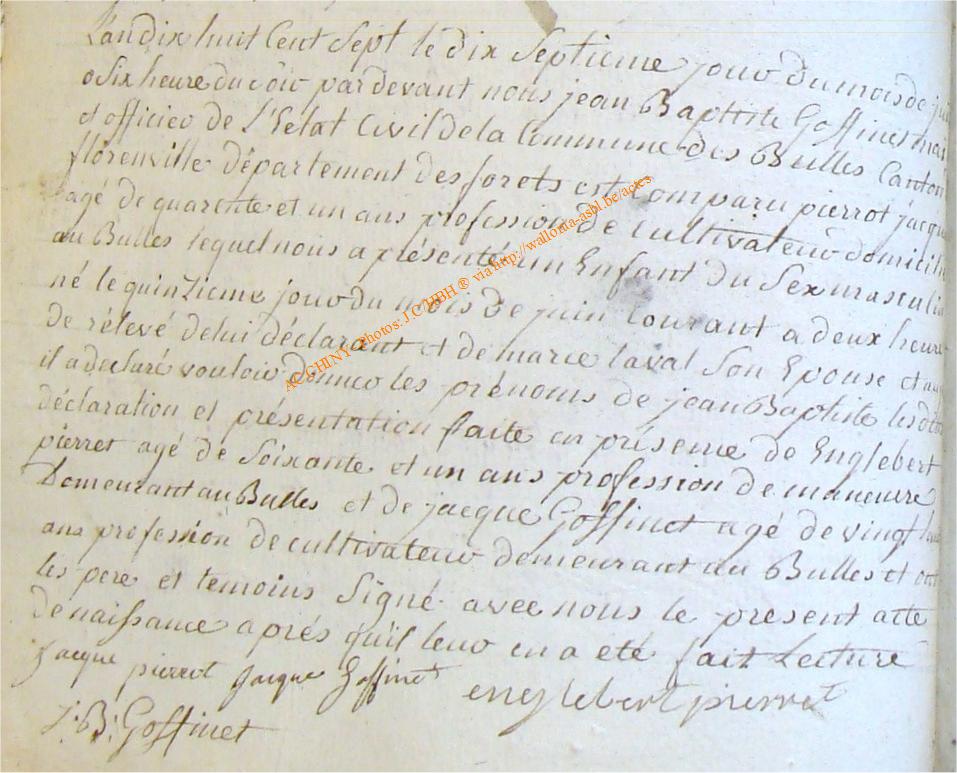 L'an dix huit Cent Sept le dix Septieme jour du mois de
a Six heure du Soir pardevant nous jean Baptiste Goffinet
et officier de L'Eetat Civil de la Commune des Bulles Canton
florenville département des forets est Comparu pierrot jacque
agé de quarente et un ans profession de Cultivateur domicilié
au Bulles lequel nous a présenté un Enfant du Sex masculin
né le quinzieme jour du mois de juin Courant a deux heure
de rélevé de lui déclarant et de marie laval Son Epouse et
il a declaré vouloir donner les prénoms de jean Baptiste lesdites
déclaration et présentation faite en présence de Englebert
pierret agé de Soixante et un ans profession de maneuvre
Domeurant au Bulles et de jacque Goffinet agé de vingt
ans profession de cultivateur demeurant au Bulles et ont
les peré et temoins Signé avec nous le present acte
de naissance aprés qu'il leur en a eté fait Lecture
Jacque pierrot Jacque Goffinet englebert pierret
J: B: Goffinet
AC CHINY Photos: J.C HBH ® via http://wallonia-asbl.be/actes